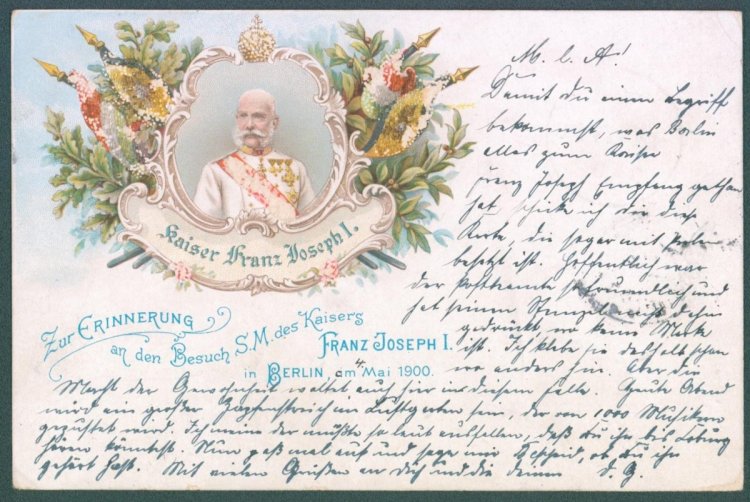 Kaiser Franz Joseph I.
Zur ERINNERUNG
an den BESUCH S.M. des Kaisers
FRANZ JOSEPH I.
in BERLIN, am 4. Mai 1900.
M. l. A!
Damit du einen Begriff
bekommst, was Berlin
alles zum Kaiser
Franz Joseph Empfang gethan
hat schicke ich dir diese
Karte, die sogar mit Perlen
besetzt ist. Hoffentlich war
der Postbeamte so freundlich und
hat seinen Stempel nicht dahin
gedrückt wo keine Marke
ist. Ich klebe sie deshalb schon
wo anders hin. Aber die
Macht der Gewohnheit waltet auch hier in diesem Falle. Heute Abend
wird ein großer Zapfenstreich im Lustgarten sein, der von 1000 Musikern
wird. Ich meine der müßte so laut ausfallen, daß du ihn bis Coburg
hören könntest. Nun paß mal auf und sage mir Bescheid, ob du ihn
gehört hast. Mit vielen Grüßen an Dich und die deinen